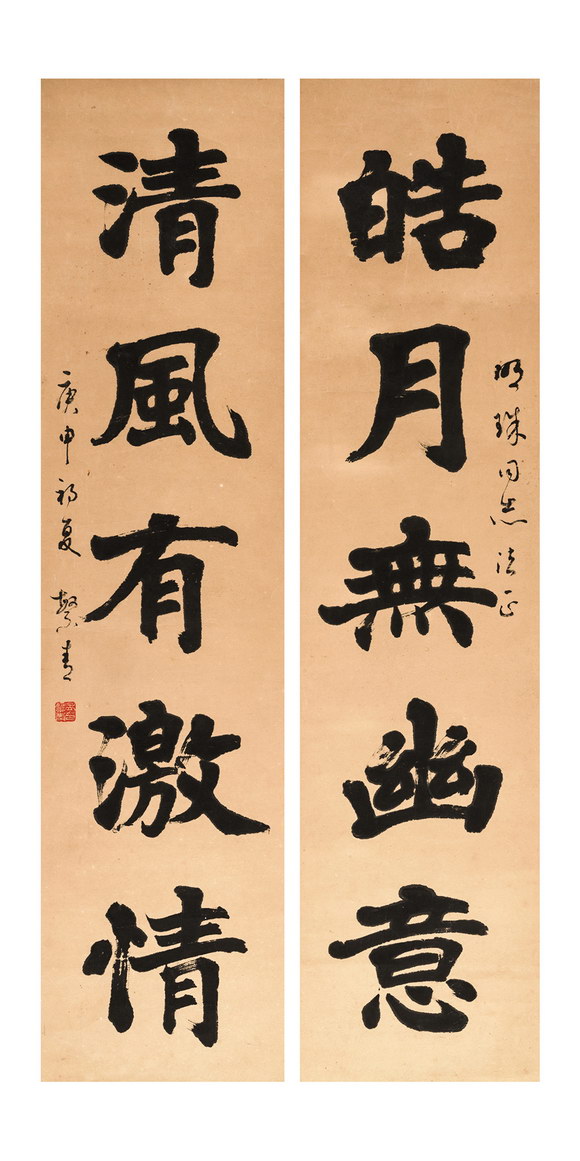 皓月無幽意
明珠同志法正
清風有激情
庚申初夏